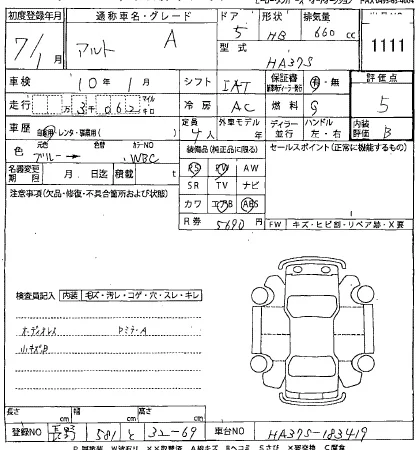 初度登録年月 通称車名・グレード ドア 形状 排気量
7/1 アルト A 5 HB 660 cc
型式 HA37S 1111
車検 10年 1月 シフト IAT 保証書 有・無 評価点
走行 万 3千062 マイル キロ 冷房 AC 燃料 G 5
車歴 自家用・レンタ・ 定員 4人 外車モデル 年 ディーラー 並行 ハンドル 左・右 内装評価 B
色 元色 ブルー → 色替 カラーNO WBC 装備品(純正品に限る) セールスポイント(正常に機能するもの)
名義変更期限 月 日迄 積載 t PS PW AW
注意事項(欠品・修復・不具合箇所および状態) SR TV ナビ
カワ エアB ABS
R券 5690円 FW キズ・ヒビ割・リペア跡・X要
検査員記入 内装 キズ・汚レ・コゲ・穴・スレ・キレ
オーデオレス
小キズ
長さ cm 幅 cm 高さ cm
登録NO 長野 581 と 32-69 車台NO HA37S-183419